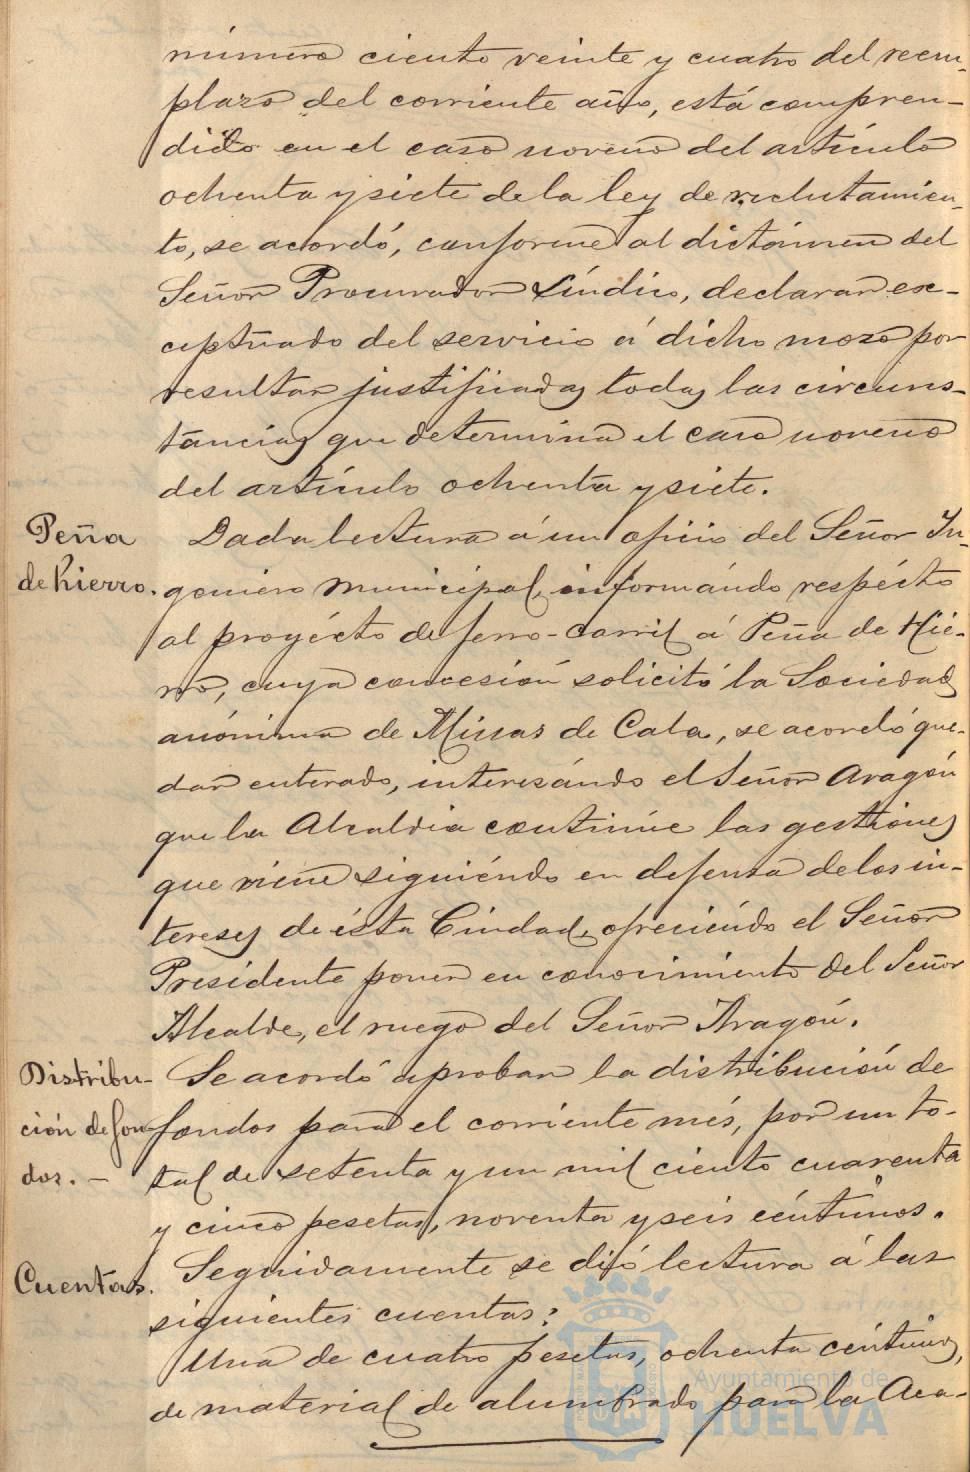 número ciento veinte y cuatro del reem-
plazo del corriente año, está compren-
dido en el caso noveno del artículo
ochenta y siete de la ley de reclutamien-
to, se acordó, conforme al dictámen del
Señor Procurador Síndico, declarar ex-
ceptuado del servicio á dicho mozo por
resultar justificadas todas las circuns-
tancias que determina el caso noveno
del artículo ochenta y siete.
Peña
de hierro.
Dada lectura á un oficio del Señor In-
geniero municipal, informándo respécto
al proyécto de ferro-carril á Peña de Hie-
rro, cuya concesión solicitó la Sociedad
anónima de Minas de Cala, se acordó que-
dar enterado, interesándo el Señor Aragón
que la Alcaldia continúe las gestiones
que viene siguiéndo en defensa de los in-
tereses de ésta Ciudad, ofreciéndo el Señor
Presidente poner en conocimiento del Señor
Alcalde, el ruego del Señor Aragón.
Distribu-
ción de fon-
dos. -
Se acordó aprobar la distribución de
fondos para el corriente més, por un to-
tal de setenta y un mil ciento cuarenta
y cinco pesetas, noventa y seis céntimos.
Cuentas.
Seguidamente se dió lectura á las
siguientes cuentas:
Una de cuatro pesetas, ochenta céntimos,
de material de alumbrado para la Aca-
Ayuntamiento de
HUELVA